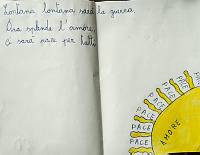 Lontana lontana sarà la guerra.
Ora splende l'amore,
ci sarà pace per tutti
PACE
PACE
PACE
PACE
PACE
PACE
PACE
AMORE